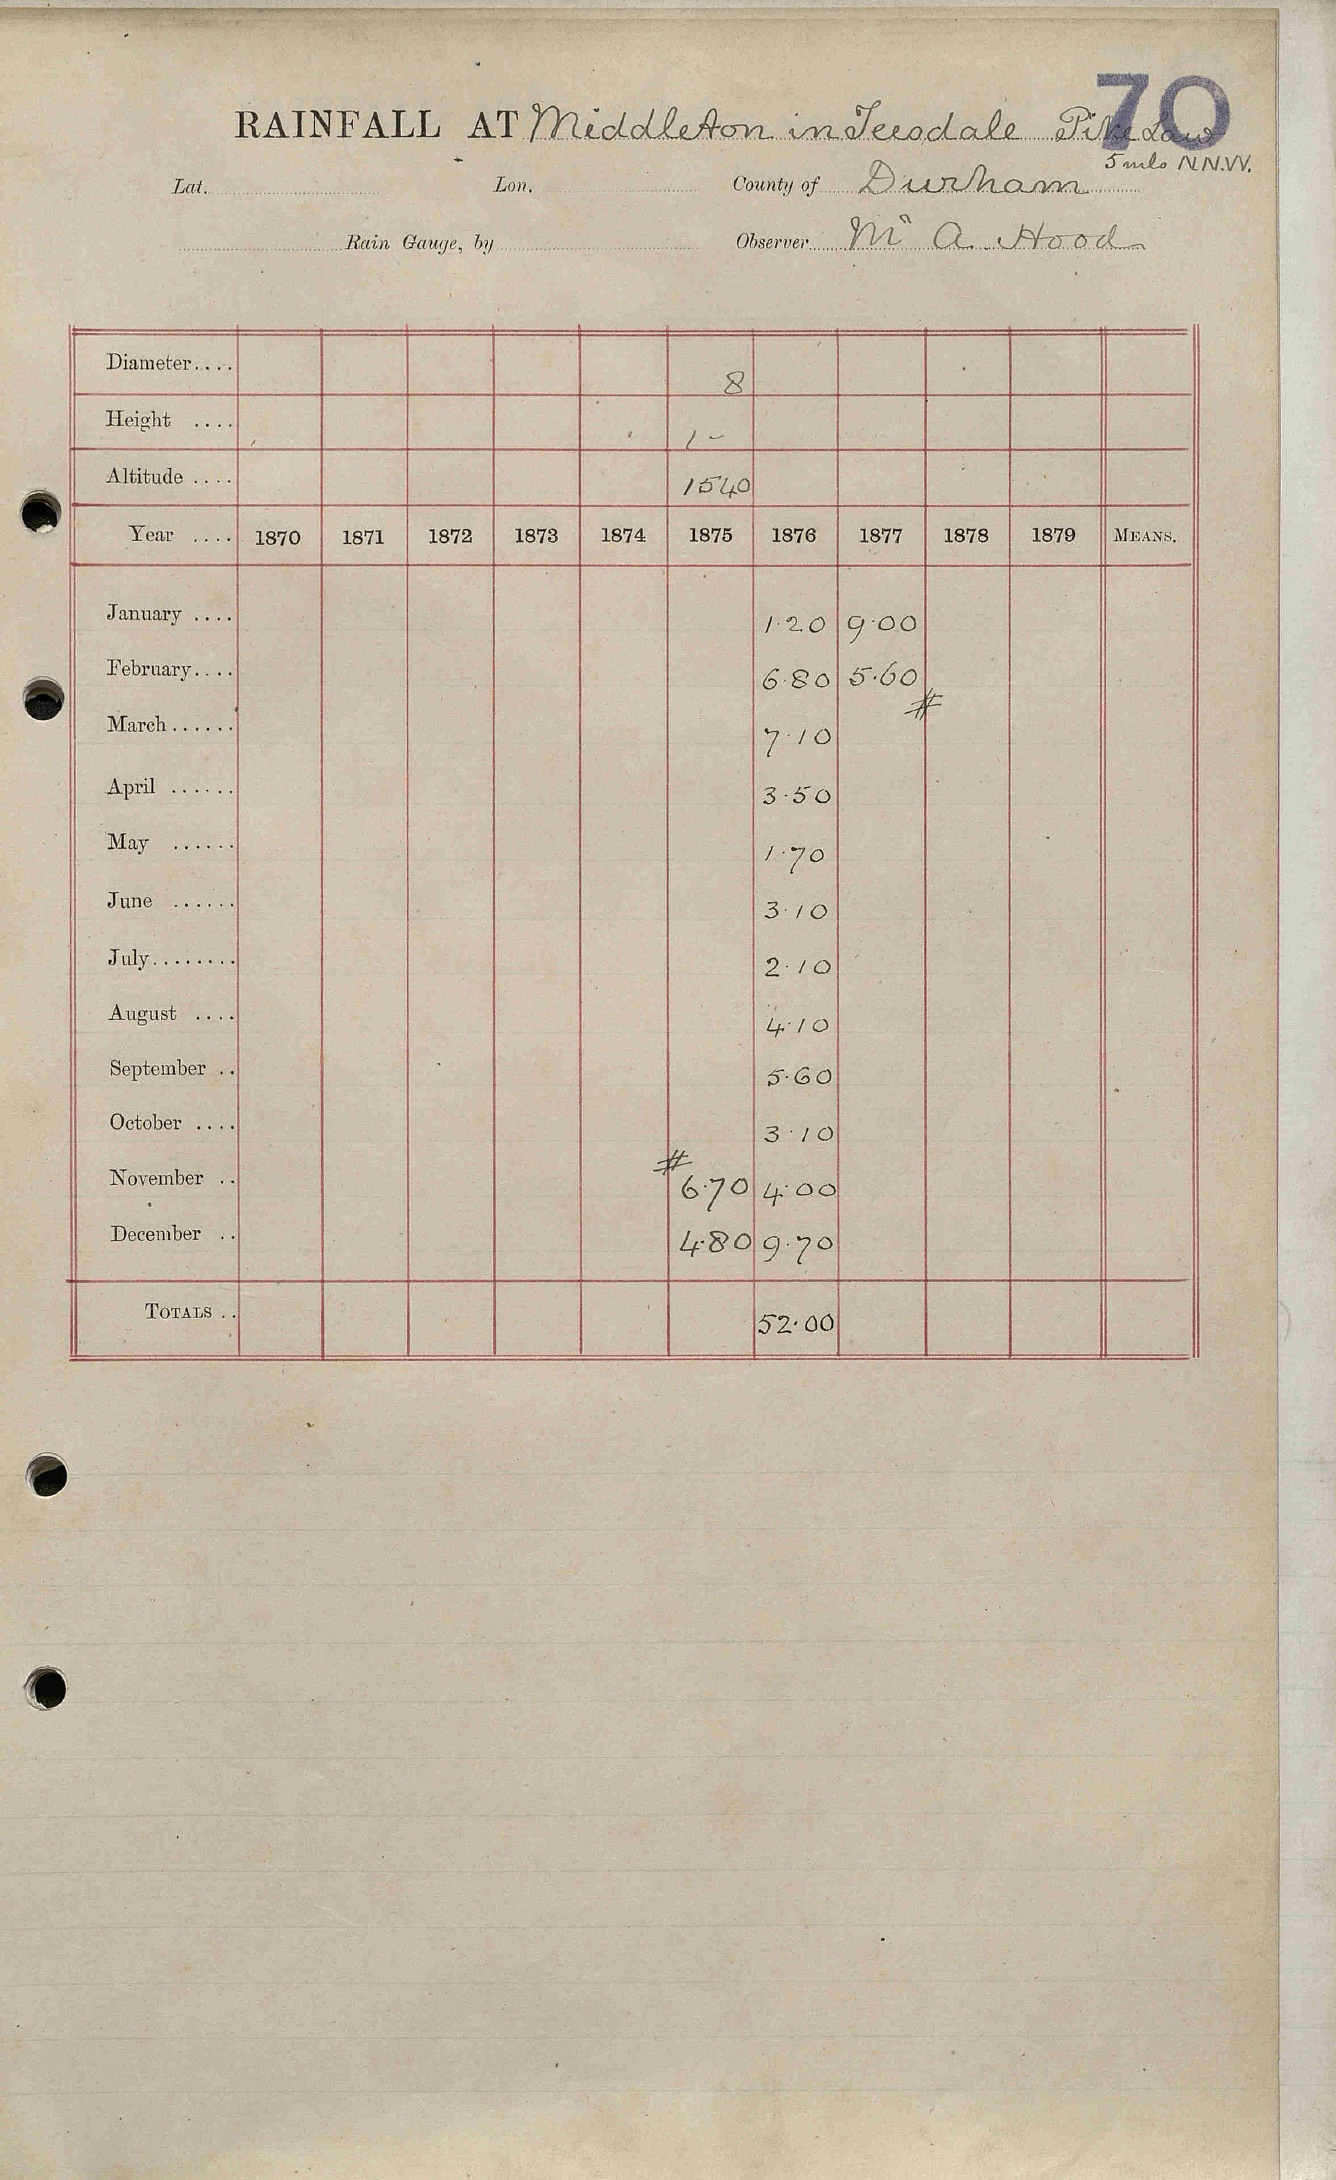 70
RAINFALL AT Middleton in Teesdale Pike Law
5 mls N.N.W.
Lat. Lon. County of Durham
Rain Gauge, by Observer Mr A. Hood
Diameter.... 8
Height .... 1 -
Altitude .... 1540
Year .... 1870 1871 1872 1873 1874 1875 1876 1877 1878 1879 MEANS.
January .... 1.20 9.00
February.... 6.80 5.60
#
March...... 7.10
April ...... 3.50
May ...... 1.70
June ...... 3.10
July........ 2.10
August .... 4.10
September .. 5.60
October .... 3.10
#
November .. 6.70 4.00
December .. 4.80 9.70
TOTALS .. 52.00